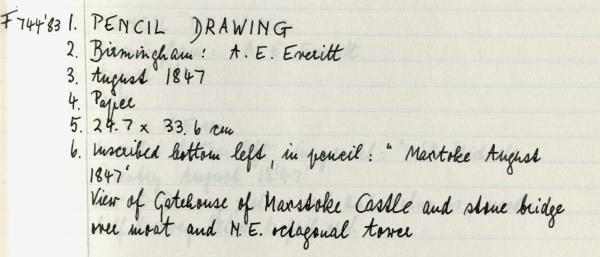 F744'83 1. PENCIL DRAWING
2. Birmingham: A. E. Everitt
3. August 1847
4. Paper
5. 24.7 x 33.6 cm
6. Inscribed bottom left, in pencil: "Maxtoke August
1847"
View of Gatehouse of Maxstoke Castle and stone bridge
over moat and N.E. octagonal tower